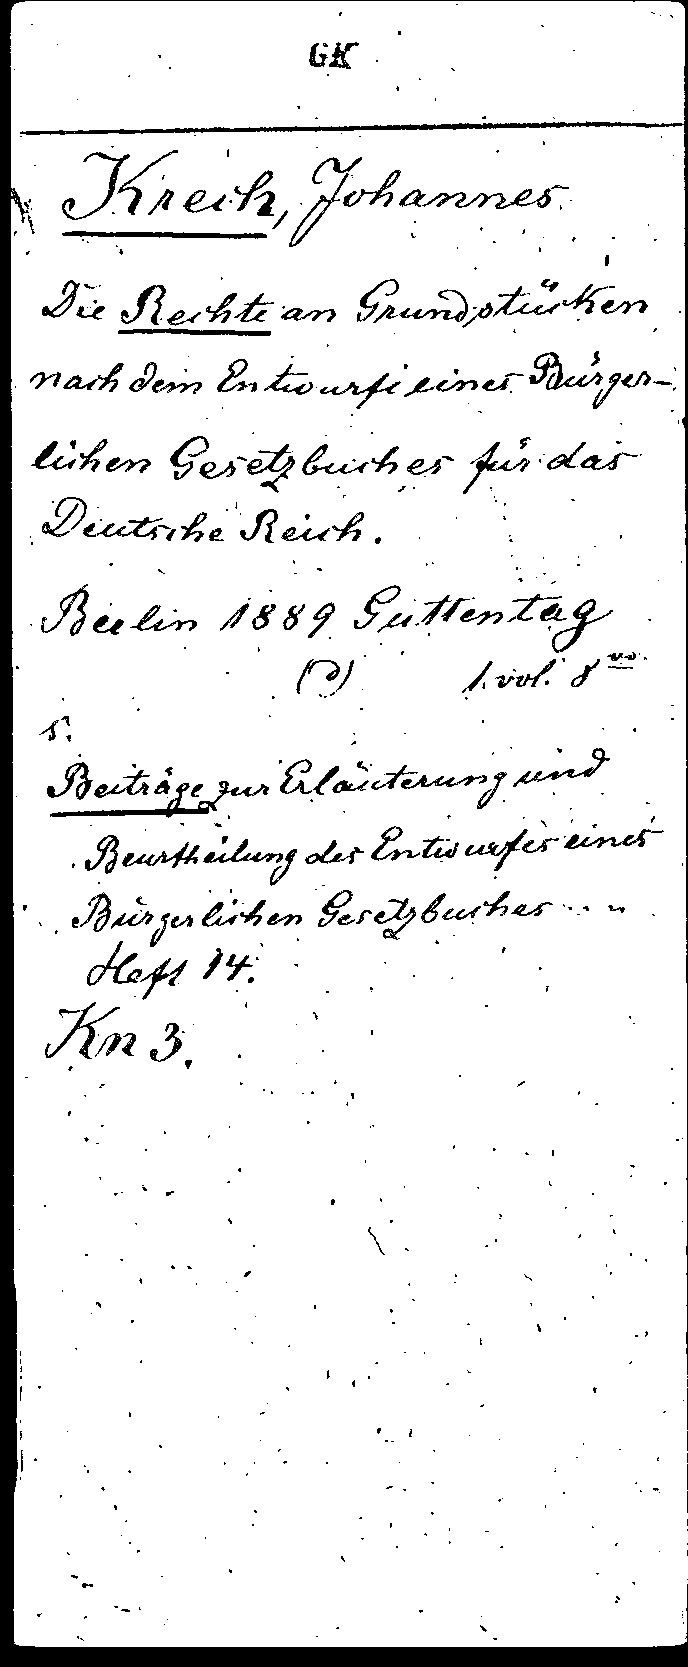 GK
Krech, Johannes
Die Rechte an Grundstücken
nach dem Entwurfe eines Bürger-
lichen Gesetzbuches für das
Deutsche Reich.
Berlin 1889 Guttentag
(D) 1. vol. 8vo.
s.
Beiträge zur Erläuterung und
Beurtheilung des Entwurfes eines
Bürgerlichen Gesetzbuches . . "
Heft 14.
Kn 3.